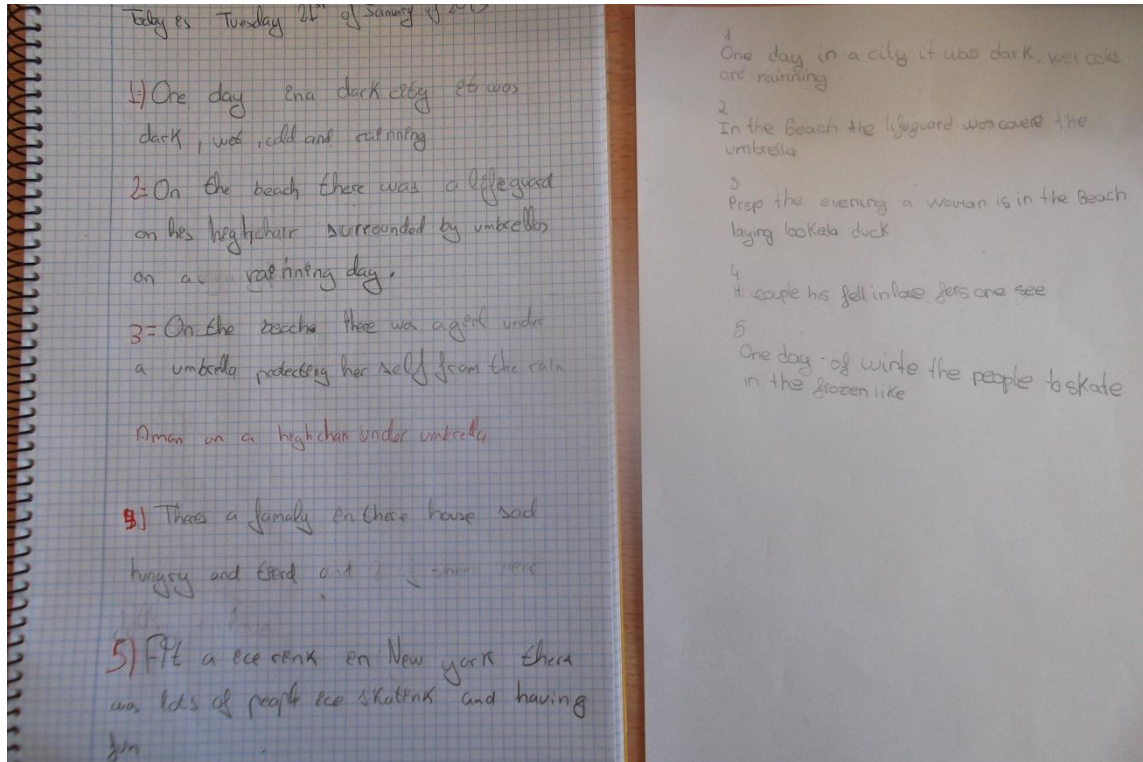 Today es Tuesday of January of
1) One day ena dark cety et was
dark, wet, cold and raenning
2= On the beach there was a lefeguard
on hes heghchair surrounded by umbrellas
on a raenning day.
3= On the beach there was a gerl under
a umbrella protecteng her self from the rain
A man on a heghchair under umbrella
Theres a famaly en there house sad
hungry and terd
5) At a ece renk en New york there
was lots of people ece skatenk and having
fun
1
One day in a city it was dark, wet cold
and rainning
2
In the Beach the lifeguard was covere the
umbrella
3
Prep the evening a woman is in the Beach
laying duck
4
couple his fell in love one see
5
One day of winte the people to skate
in the frozen like